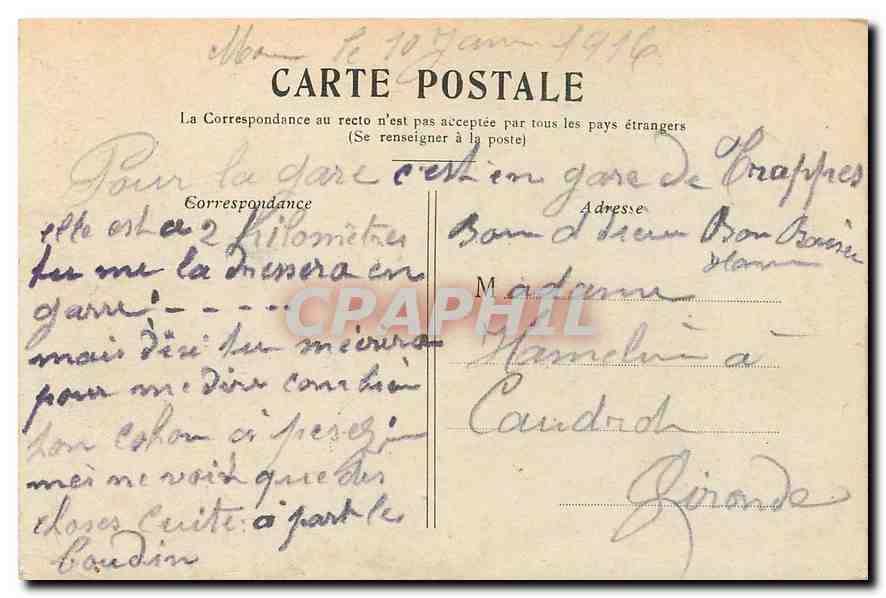 le 10 Janv 1916
CARTE POSTALE
La Correspondance au recto n'est pas acceptée par tous les pays étrangers
(Se renseigner à la poste)
Pour la gare c'est en gare de Trappes
Correspondance
elle est a 2 kilometres
tu me la dressera en
garre! - - - - -
mais dísi tu mécrira
pour me dire combien
ton cohon a pesez
mes ne voit que des
choses cuite a part le
boudin
Adresse
Bon Baiser
Madame
Hamelin à
Caudrot
Gironde
CPAPHIL